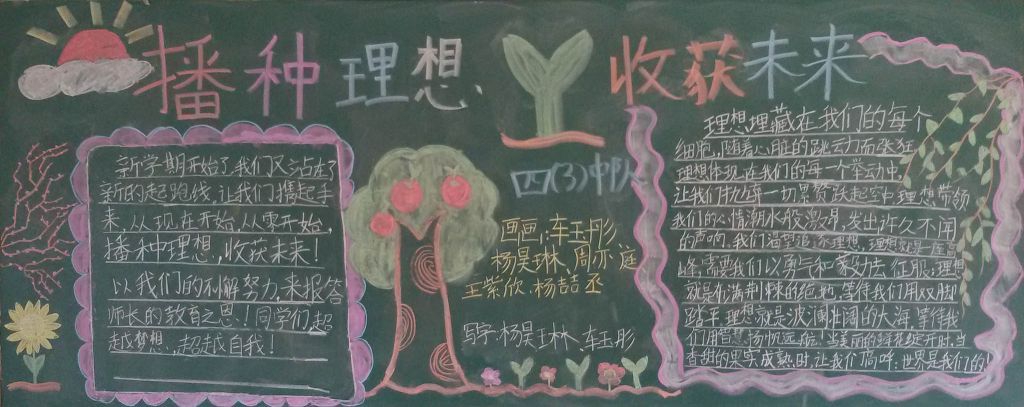 播种理想 收获未来
新学期开始了,我们又站在了
新的起跑线,让我们携起手
来,从现在开始,从零开始,
播种理想,收获未来!
以我们的不懈努力,来报答
师长的教育之恩!同学们,超
越梦想,超越自我!
四(3)中队
画画:车玉彤
杨昊琳、周亦庭
王紫欣、杨喆丞
写字:杨昊琳、车玉彤
理想埋藏在我们的每个
细胞,随着心脏的跳动而张狂
理想体现在我们的每一个举动中,
让我们抛弃一切累赘跃起空中理想带领
我们的心情潮水般激昂,发出许久不闻
的声响,我们希望追求理想,理想就是一座高
峰,需要我们以勇气和毅力去征服;理想
就是布满荆棘的绝地,等待我们用双脚
踏平 理想就是波澜壮阔的大海,等待我
们用智慧扬帆远航,当美丽的鲜花绽开时,当
香甜的果实成熟时,让我们高呼:世界是我们的!